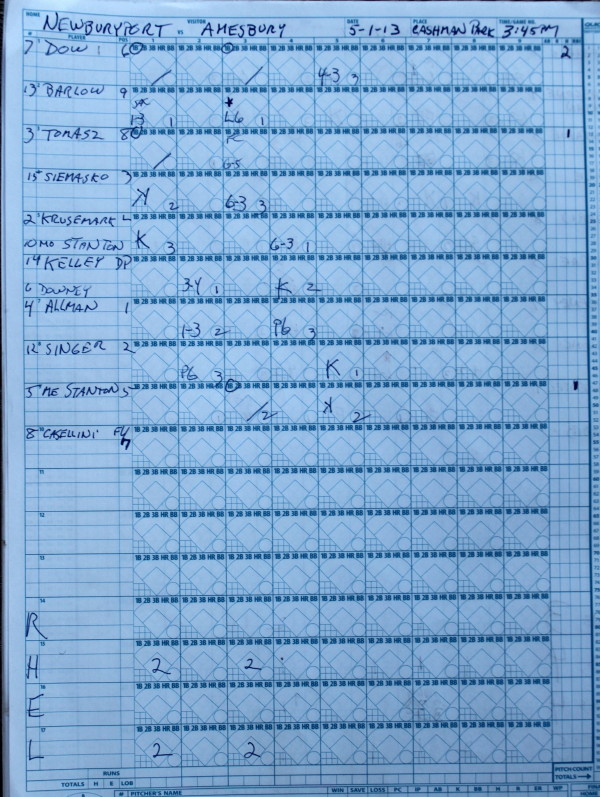 HOME VISITOR DATE PLACE TIME/GAME NO.
NEWBURYPORT VS AMESBURY 5-1-13 CASHMAN PARK 3:45PM
# PLAYER POS 1 2 3 4 5 6 7 8 9
7 DOW 6 1B 2B 3B HR BB 4-3 3 2
13 BARLOW 9 SAC 1-3 1 * L6 1
3 TOMASZ 8 FC 6-5 1
15 SIEMASKO 3 K 2 6-3 3
2 KRUSEMARK
10 MO STANTON K 3 6-3 1
14 KELLEY DP
6 DOWNEY 3-4 1 K 2
4 ALLMAN 1 1-3 2 P6 3
12 SINGER 2 P6 3 K 1
5 ME STANTON 5 2 K 2 1
8 CASELLINI 7
11
12
13
14
R
15
H 2 2
16
E
17
L 2 2
RUNS
TOTALS H E LOB
PITCH COUNT
TOTALS
# PITCHER'S NAME WIN SAVE LOSS PC IP AB K BB H R ER WP